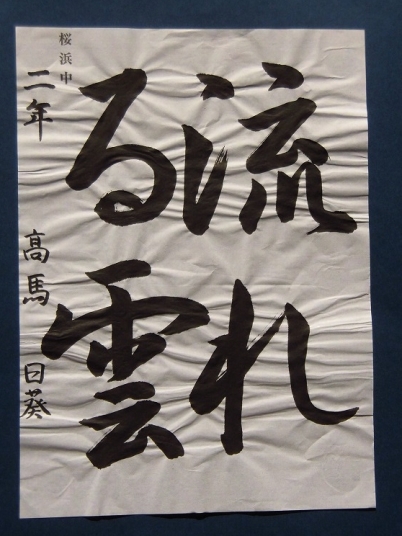 流れ
る雲
桜浜中
二年 高馬 日葵